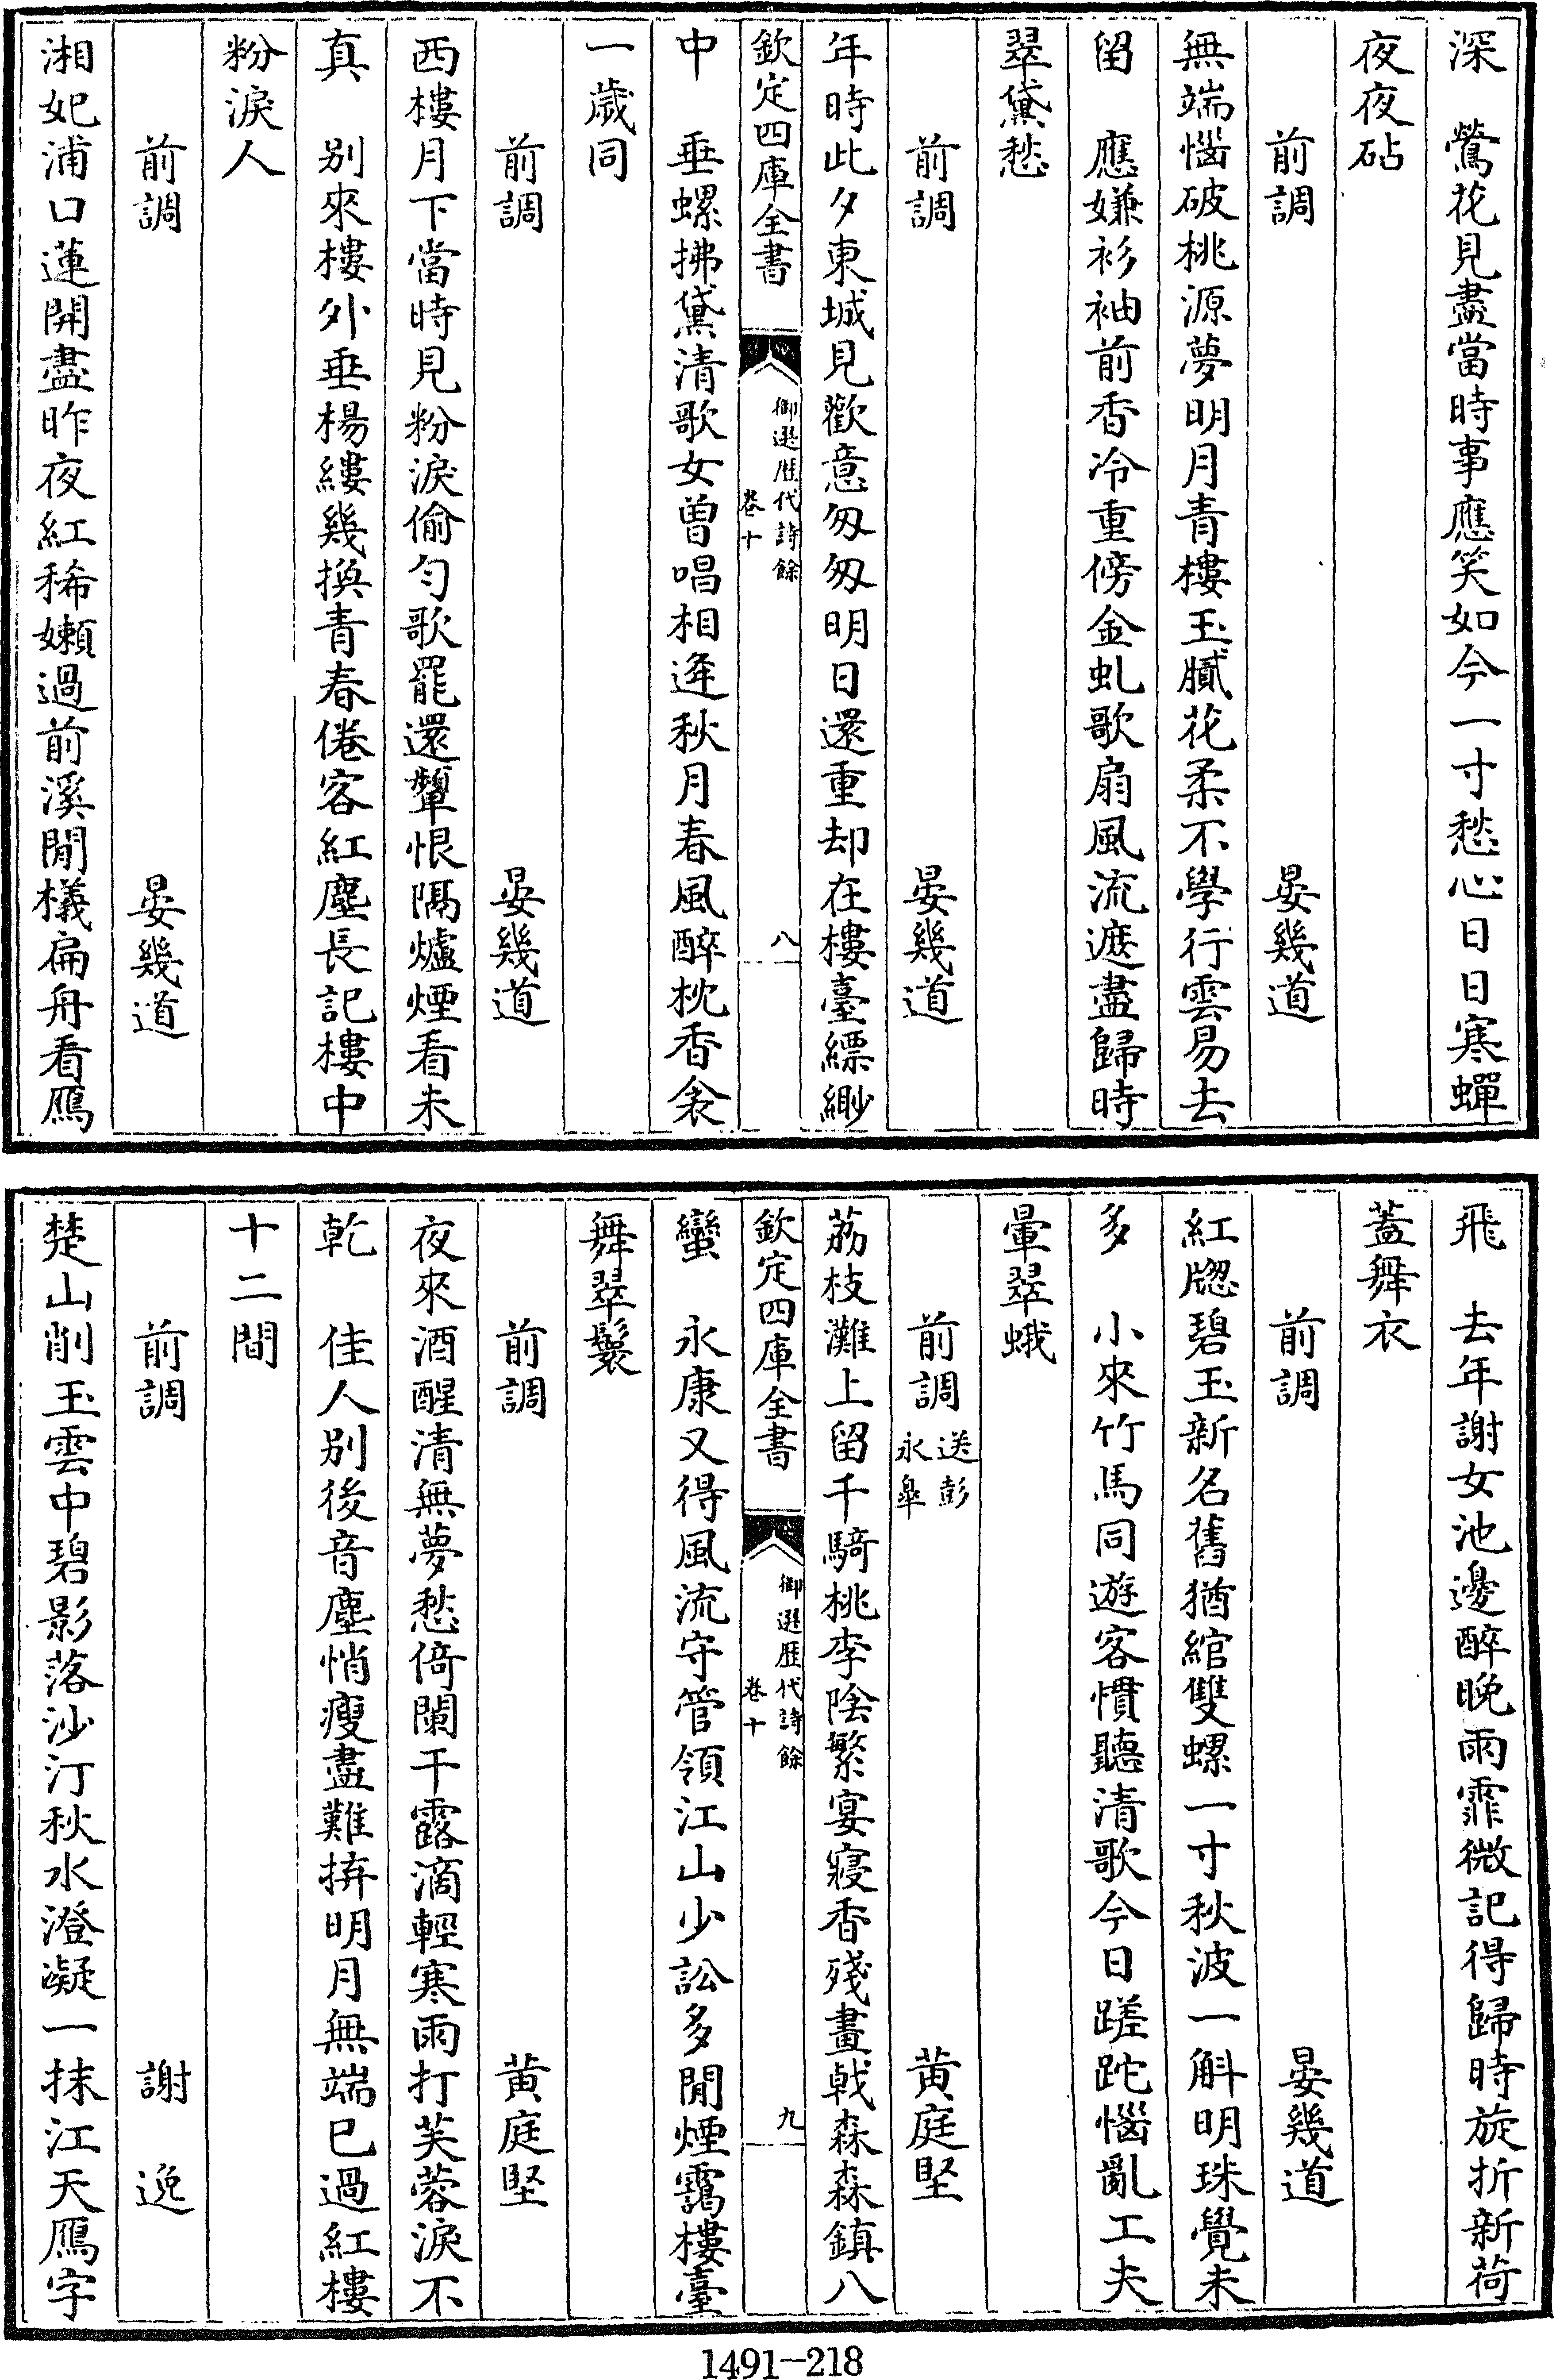 深　鶯花見盡當時事應笑如今一寸愁心日日寒蟬
夜夜砧
前調　晏幾道
無端惱破桃源夢明月青樓玉膩花柔不學行雲易去
留　應嫌衫袖前香冷重傍金虬歌扇風流遮盡歸時
翠黛愁
前調　晏幾道
年時此夕東城見歡意匆匆明日還重却在樓臺縹緲
欽定四庫全書　御選歷代詩餘　卷十　八
中　垂螺拂黛清歌女曾唱相逢秋月春風醉枕香衾
一歲同
前調　晏幾道
西樓月下當時見粉淚偷勻歌罷還顰恨隔爐煙看未
真　别來樓外垂楊縷幾換青春倦客紅塵長記樓中
粉淚人
前調　晏幾道
湘妃浦口蓮開盡昨夜紅稀嬾過前溪閒檥扁舟看鴈
飛　去年謝女池邊醉晚雨霏微記得歸時旋折新荷
蓋舞衣
前調　晏幾道
紅牎碧玉新名舊猶綰雙螺一寸秋波一斛明珠覺未
多　小來竹馬同遊客慣聽清歌今日蹉跎惱亂工夫
暈翠蛾
前調　送彭永臯　黄庭堅
荔枝灘上留千騎桃李陰繁宴寢香殘畫戟森森鎮八
欽定四庫全書　御選歷代詩餘　卷十　九
蠻　永康又得風流守管領江山少訟多閒煙靄樓臺
舞翠鬟
前調　黄庭堅
夜來酒醒清無夢愁倚闌干露滴輕寒雨打芙蓉淚不
乾　佳人别後音塵悄瘦盡難拚明月無端已過紅樓
十二間
前調　謝逸
楚山削玉雲中碧影落沙汀秋水澄凝一抹江天鴈字
1491-218